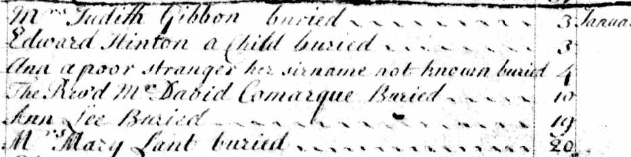 Mrs Judith Gibbon buried 3 Janua
Edward Hinton a Child buried 3
Ann a poor stranger her sirname not known buried 4
The Rev'd Mr David Comarque Buried 10
Ann Lee Buried 19
Mrs Mary Lant buried 20